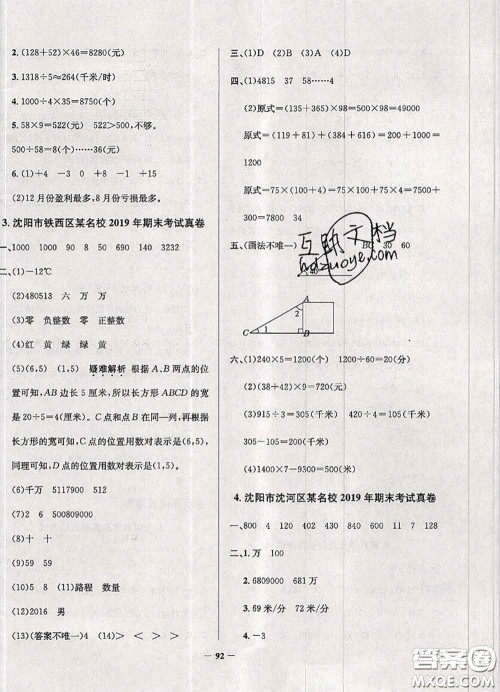 2.(128+52)×46=8280(元)
3.1318÷5≈264(千米/时)
4.1000÷4×35=8750(个)
5.58×9=522(元) 522>500,不够。
500÷58=8(个)……36(元)
6.(1)+4 -3 0 +8 -1 +15
(2)12月份盈利最多,8月份亏损最多。
3. 沈阳市铁西区某名校2019年期末考试真卷
一、1000 1000 90 8 50 690 140 3232
二、(1)-12℃
(2)480513 六 万 万
(3)零 负整数 零 正整数
(4)红 黄 绿绿 黄
(5)(6,5) (1,5) 疑难解析 根据A、B两点的
位置可知,AB边长5厘米,所以长方形ABCD的
宽20÷5=4(厘米)。C点和点B在同一列,再根据
长方形的宽可知,C点的位置用数对表示是(6,5),
同理可知,D点的位置用数对表示是(1,5)。
(6)千万 5117900 512
(7)2 6 509809000
(8)十 十
(9)
(10)5 8 (11)路程 数量
(12)2016 男
(13)(答案不唯一)4 (14)> < > >
三、(1)D (2)B (3)A (4)D
四、(1)4815 37 58……4
(2)原式=(135+365)×98=500×98=49000
原式=(119+81)+(384+616)=200+1000
=1200
原式=75×(100+4)=75×100+75×4=7500+
300=7800 34
五、(画法不唯一) BC 30 60
A
1
2
C
B
六、(1)240×5=1200(千米) 1200÷60=20(分)
(2)(38+42)×9=720(元)
(3)915÷3=305(千米) 420÷4=105(千米)
305-105=200(千米)
(4)1400×7-9300=500(千米)
4. 沈阳市沈河区某名校2019年期末考试真卷
一、800 4 120 420 840 640 11 7 128
二、1.万 100
2.6809000 681万
3.69米/分 72米/分
4.-3
— 92 —
互助文档
hdzuoye.com
答案圈
MXQE.COM